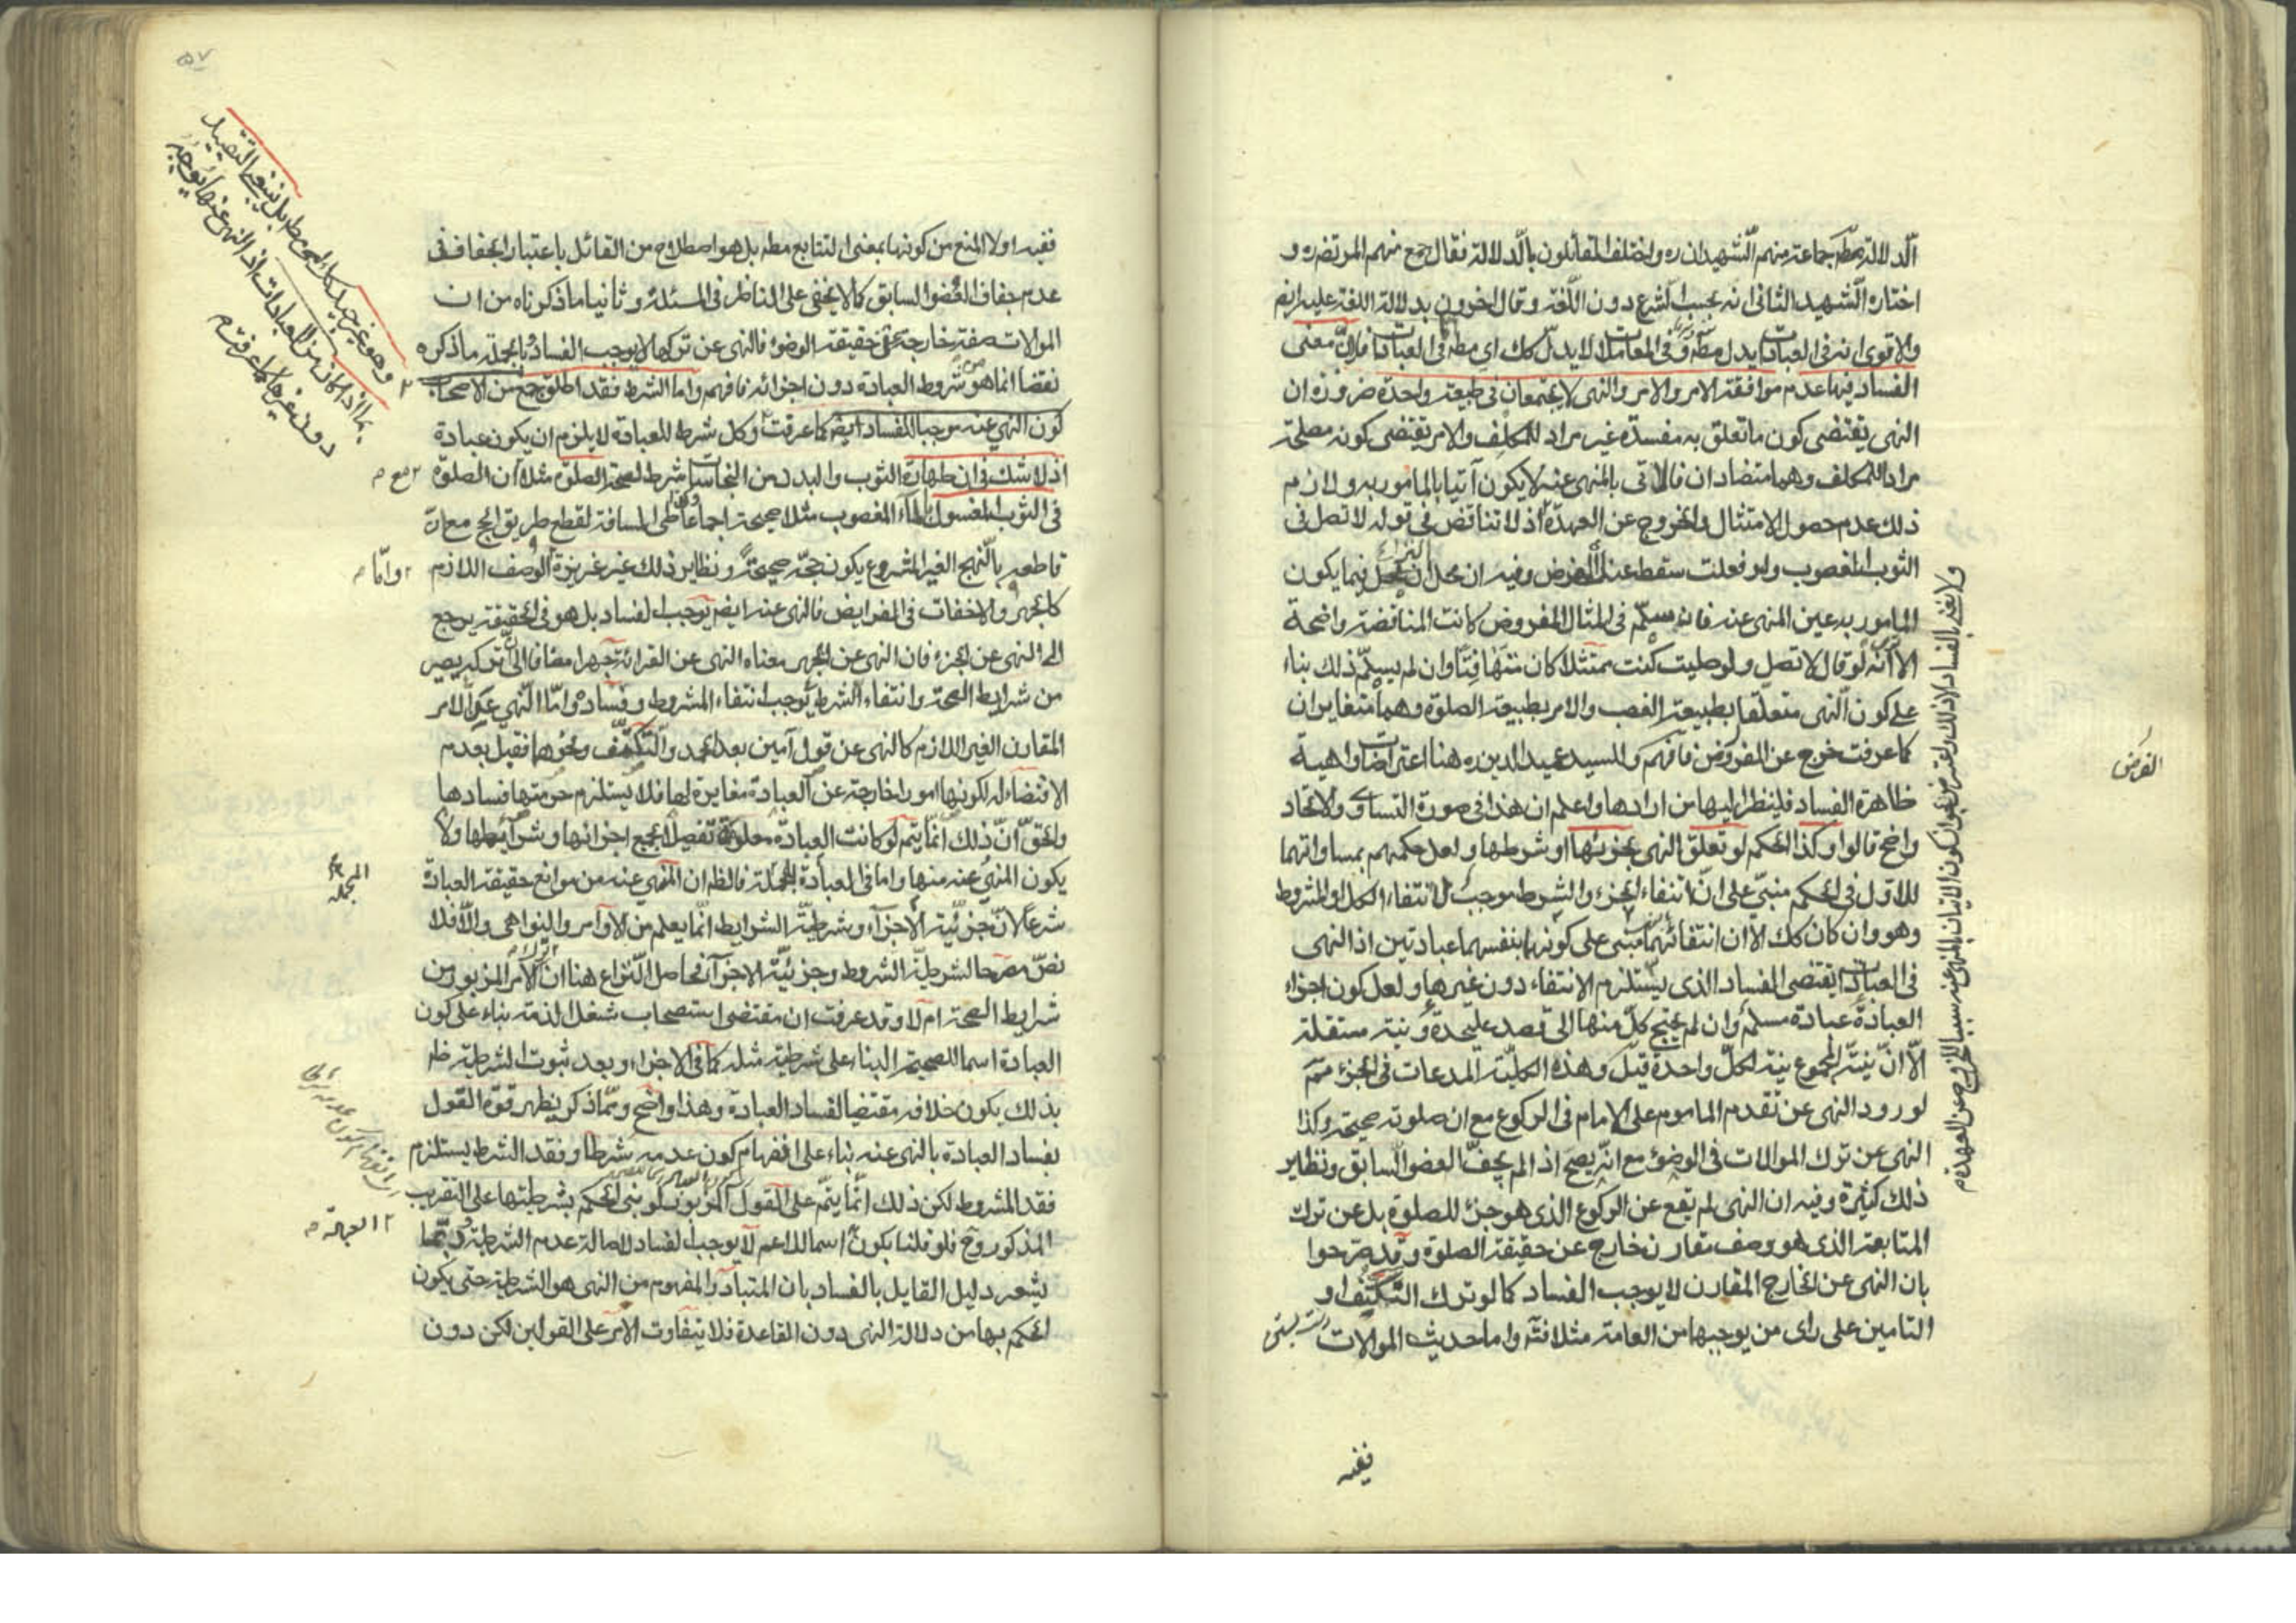 الدلالة مطه جماعة منهم الشهيدان ره واختلف القائلون بالدلالة فقال جمع منهم المرتضى ره و
اختاره الشهيد الثاني انه بحسب الشرع دون اللغة وقال اخرون بدلالة اللغة عليه ايضم
والاقوى انه في العبادات يدل مطه وفي المعاملات لا يدل كك اي مطه في العبادات فلان معنى
الفساد فيها عدم موافقة الامر والامر والنهي لا يجتمعان في طبيعة واحدة ضرورة ان
النهي يقتضي كون ما تعلق به مفسدة غير مراد للمكلف والامر يقتضي كونه مصلحة
مراد للمكلف وهما متضادان فالاتي بالمنهي عنه لا يكون آتيا بالمامور به ولازم
ذلك عدم حصول الامتثال والخروج عن العهدة اذ لا تناقض في قوله لا تصل في
الثوب المغصوب ولو فعلت سقط عنك الفرض وفيه ان محل النزاع فيما يكون
المامور به عين المنهي عنه فان سلم في المثال المفروض كانت المناقضة واضحة
الا انه لو قال لا تصل ولو صليت كنت ممتثلا كان متهافتا وان لم يسلم ذلك بناء
على كون النهي متعلقا بطبيعة الغصب والامر بطبيعة الصلوة وهما متغايران
كما عرفت خرج عن المفروض فافهم وللسيد عميد الدين ره هنا اعتراضات واهية
ظاهرة الفساد فلينظر اليها من ارادها واعلم ان هذا في صورة التساوي والاتحاد
واضح قالوا وكذا الحكم لو تعلق النهي بجزئها او شرطها ولعل حكمهم بمساواتهما
للاول في الحكم مبني على ان انتفاء الجزء والشرط موجب لانتفاء الكل او المشروط
وهو وان كان كك الا ان انتفائهما مبنى على كونهما بنفسهما عبادتين اذ النهي
في العبادات يقتضي الفساد الذي يستلزم الانتفاء دون غيرها ولعل كون اجزاء
العبادة عبادة مسلم وان لم يحتج كل منها الى قصد عليحدة ونية مستقلة
الا ان نية المجموع نية لكل واحدة قيل وهذه الكلية المدعات في الجزء مم
لورود النهي عن تقدم الماموم على الامام في الركوع مع ان صلوته صحيحة وكذا
النهي عن ترك الموالات في الوضوء مع انه يصح اذا لم يجف العضو السابق ونظاير
ذلك كثيرة وفيه ان النهي لم يقع عن الركوع الذي هو جزء للصلوة بل عن ترك
المتابعة الذي هو وصف مقارن خارج عن حقيقة الصلوة وقد صرحوا
بان النهي عن الخارج المقارن لا يوجب الفساد كما لو ترك التكتف او
التامين على راى من يوجبها من العامة مثلا فته واما حديث الموالات
ولا يغني بالفساد الا ذلك واعترض بجواز كون الاتيان بالمنهي عنه سببا للخروج عن العهدة م
الفرض
ففيه
٥٧
ففيه اولا المنع من كونها بمعنى التتابع مطه بل هو اصطلاح من القائل باعتبار الجفاف في
عدم جفاف العضو السابق كما لا يخفى على الناظر في المسئلة وثانيا ما ذكرناه من ان
الموالات صفة خارجة عن حقيقة الوضوء فالنهي عن تركها لا يوجب الفساد وبالجملة ما ذكره
نقضا انما هو من شروط العبادة دون اجزائه فافهم واما الشرط فقد اطلق جمع من الاصحاب
كون النهي عنه موجبا للفساد ايضم كما عرفت وكل شرط للعبادة لا يلزم ان يكون عبادة
اذ لا شك في ان طهارة الثوب والبدن من النجاسات شرط لصحة الصلوة مثلا ان الصلوة
في الثوب المغسول بالماء المغصوب مثلا صحيحة اجماعا وكذا طي المسافة لقطع طريق الحج مع ان
قاطعه بالنهج الغير المشروع يكون حجه صحيحة ونظاير ذلك غير عزيزة الوصف اللازم
كالجهر والاخفات في الفرايض فالنهي عنه ايضم يوجب الفساد بل هو في الحقيقة يرجع
الى النهي عن الجزء فان النهي عن الجهر معناه النهي عن القرائة جهرا مضافا الى ان تركه يصير
من شرايط الصحة وانتفاء الشرط يوجب انتفاء المشروط وفساده واما النهي عن الامر
المقارن الغير اللازم كالنهي عن قول آمين بعد الحمد والتكتف ونحوها فقيل بعدم
الاقتضاء له لكونها امورا خارجة عن العبادة مغايرة لها فلا يستلزم حرمتها فسادها
والحق ان ذلك انما يتم لو كانت العبادة معلومة تفصيلا بجميع اجزائها وشرائطها ولا
يكون المنهي عنه منها واما في العبادة المجملة فالظم ان المنهي عنه من موانع حقيقة العبادة
شرعا لان جزئية الاجزاء وشرطية الشرايط انما يعلم من الاوامر والنواهي والا فلا
نص مصرحا لشرطية الشروط وجزئية الاجزاء فحاصل النزاع هنا ان ترك الامر المزبور من
شرايط الصحة ام لا وقد عرفت ان مقتضى استصحاب شغل الذمة بناء على كون
العبادة اسما للصحيحة البناء على شرطية مثله كما في الاجزاء وبعد ثبوت الشرطية
بذلك يكون خلافه مقتضيا لفساد العبادة وهذا واضح ومما ذكر يظهر قوة القول
بفساد العبادة بالنهي عنه بناء على افهام كون عدمه شرطا وفقد الشرط يستلزم
فقد المشروط لكن ذلك انما يتم على القول المزبور لو بنى الحكم بشرطيتها على التقريب
المذكور وح فلو قلنا بكون اسما للاعم لا يوجب الفساد لاصالة عدم الشرطية وربما
يشعر دليل القايل بالفساد بان المتبادر والمفهوم من النهي هو الشرطية حتى يكون
الحكم بها من دلالة النهي دون القاعدة فلا يتفاوت الامر على القولين لكن دون
وهو غير جيد مطه بل ينبغي التقييد
بما اذا كان من العبادات اذ النهي عنها يوجبه
دون غيرها كما عرفت م
مع م
واما م
المجملة
العبادة م